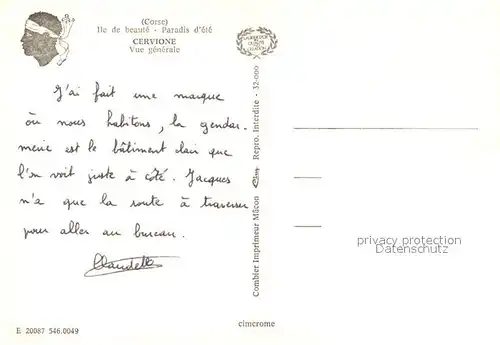 (Corse)
Ile de beauté - Paradis d'été
CERVIONE
Vue générale
J'ai fait une marque
où nous habitons, la gendar.
merie est le bâtiment clair que
l'on voit juste à côté. Jacques
n'a que la route à traverser
pour aller au bureau.
Claudette
E 20087 546.0049
Combier Imprimeur Mâcon Cim Repro. Interdite - 32-000
cimcrome
privacy protection
Datenschutz